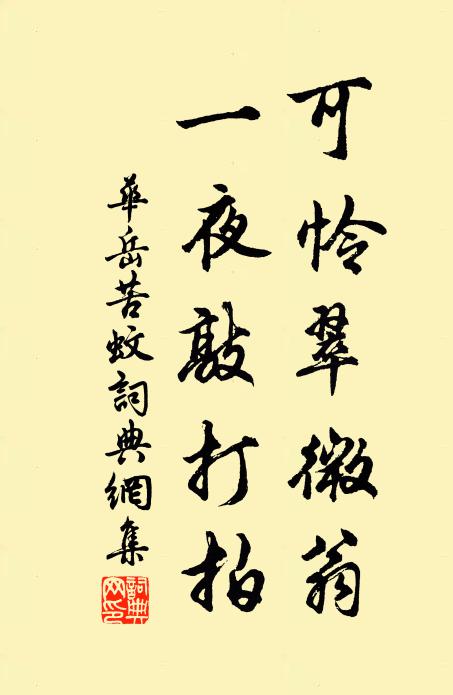 可怜翠微翁
一夜敲打拍
華岳苦蚊詞典網集
詞典网印